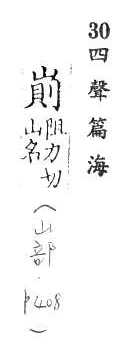 30四聲篇海
崱
阻力切
山名
（山部．p408）